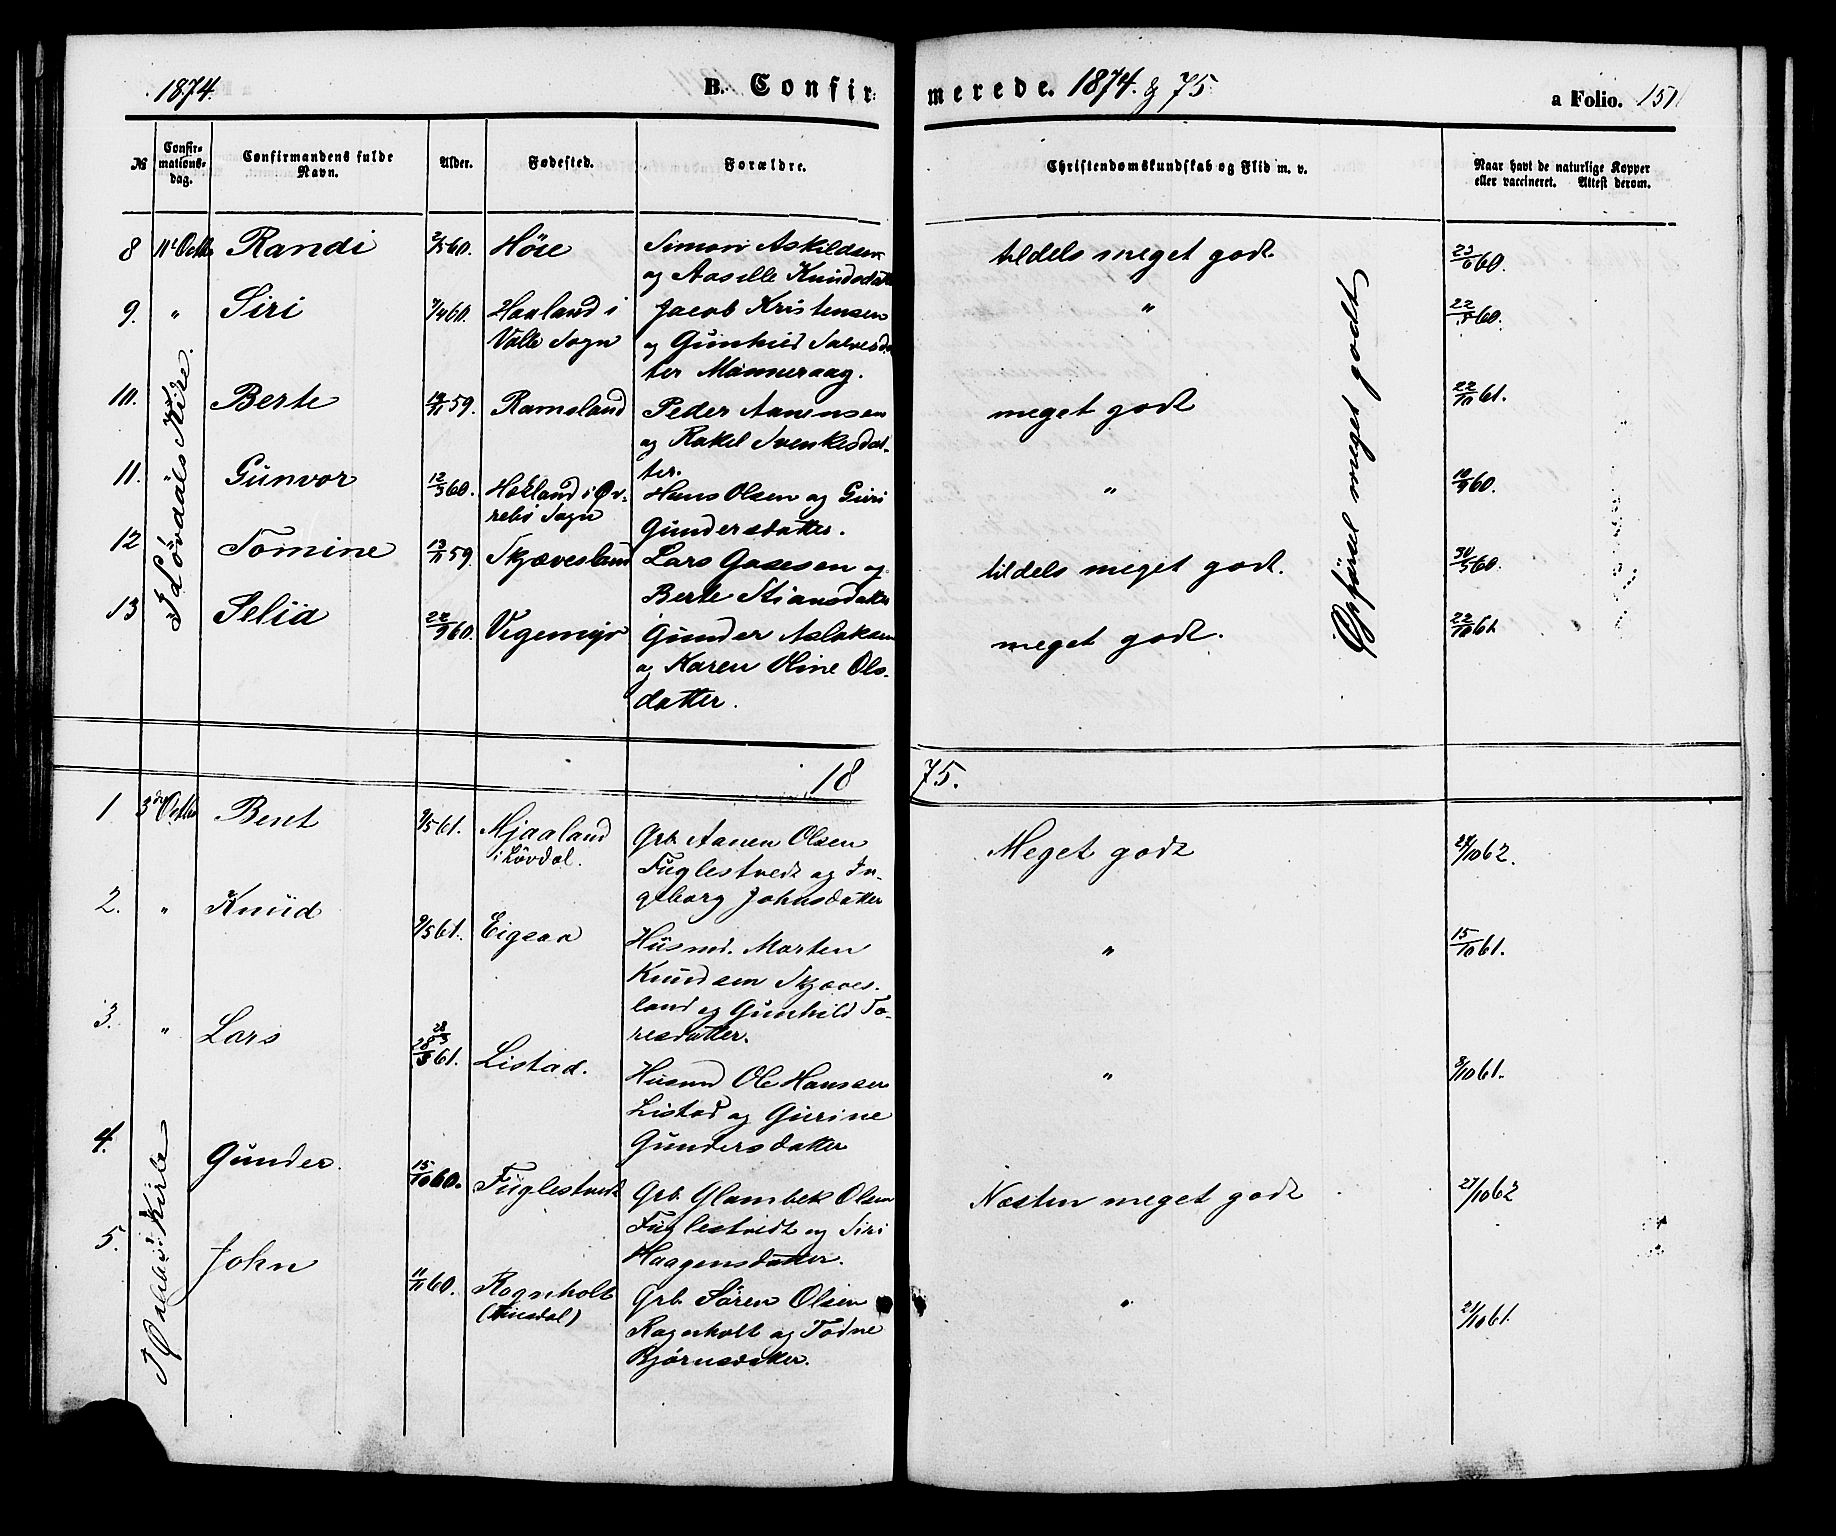 1874. B. Confirmerede. 1874. & 75. a Folio. 151
№ Confirmationsdag. Confirmandens fulde Navn. Alder. Fødested. Forældre. Christendomskundskab og Flid m. v. Naar havt de naturlige Kopper eller vaccineret. Attest derom.
8 11te Octb Randi 2/5 60. Höie Simon Askildsen tildels meget godt. 23/6 60.
og Aasille Knudsdatter
9. " Siri 7/4 60. Haaland i Jacob Kristensen " 22/5 60.
Valle Sogn og Gunhild Salvesdatter
Manneraag.
I Løvdals Kirke.
10. Berte 59. Ramsland Peder Aanensen meget godt 22/10 61.
og Rakel Svenkesdatter.
11. " Gunvor 12/3 60. Hækland i Øvrebö Sogn Hans Olsen og Guri " 10/9 60.
Gundersdatter.
12 " Tomine 13/11 59. Skjævesland Lars Gasesen og tildels meget godt. 30/5 60.
Berte Stiansdatter
13 Selia 22/9 60. Vegemyr Gunder Aslaksen meget godt. 22/10 61
og Karen Oline Olsdatter.
Opførsel meget godt
1875.
1 3die Octbr Bent 9/5 61. Mjaaland Grb. Aanen Olsen Meget godt 27/10 62.
i Lövdal. Fuglestvedt og Ingeborg Johnsdatter
2. " Knud 9/5 61. Eigeaa Husmd. Morten " 15/10 61.
Knudsen Skjævesland og Gunhild Toresdatter.
3. " Lars 28/3
28/3 61. Listad. Husmd Ole Hansen " 8/10 61.
Listad og Gurine
Gundersdatter
4. Gunder. 15/10 60. Fuglestvedt Grb. Glambek Olsen Næsten meget godt 27/10 62
Fuglestvedt og Siri
Haagensdatter.
5. John 11/11 60. Rognholt Grb. Sören Olsen " 21/10 61.
Ragnholt og Todne
Bjørnsdatter.